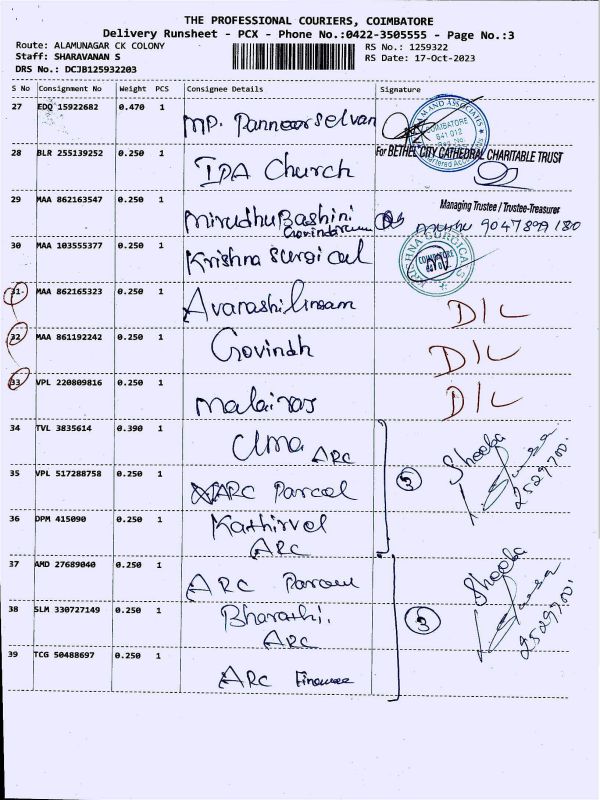 THE PROFESSIONAL COURIERS, COIMBATORE
Delivery Runsheet - PCX - Phone No.:0422-3505555 - Page No.:3
Route: ALAMUNAGAR CK COLONY
Staff: SHARAVANAN S
DRS No.: DCJB125932203
RS No.: 1259322
RS Date: 17-Oct-2023
S No Consignment No Weight PCS Consignee Details Signature
27 EDQ 15922682 0.470 1 MP. Panneerselvam
AND ASSOCIATES
COIMBATORE
641 012
28 BLR 255139252 0.250 1 IPA Church
For BETHEL CITY CATHEDRAL CHARITABLE TRUST
Managing Trustee / Trustee-Treasurer
29 MAA 862163547 0.250 1 MirudhuBashini
Govindaraju
30 MAA 103555377 0.250 1 Krishna Surgical
KRISHNA SURGICALS
COIMBATORE
31 MAA 862165323 0.250 1 Avarashilingam D/L
32 MAA 861192242 0.250 1 Govindh D/L
33 VPL 220809816 0.250 1 Malairas D/L
34 TVL 3835614 0.390 1 Uma ARC
35 VPL 517288758 0.250 1 ARC Parcel
3 Sheeba
2529700.
36 DPM 415090 0.250 1 Kathirvel
ARC
37 AMD 27689040 0.250 1 ARC Parcel
38 SLM 330727149 0.250 1 Bharathi.
ARC
3 Sheeba
2529700.
39 TCG 50488697 0.250 1 ARC Finance